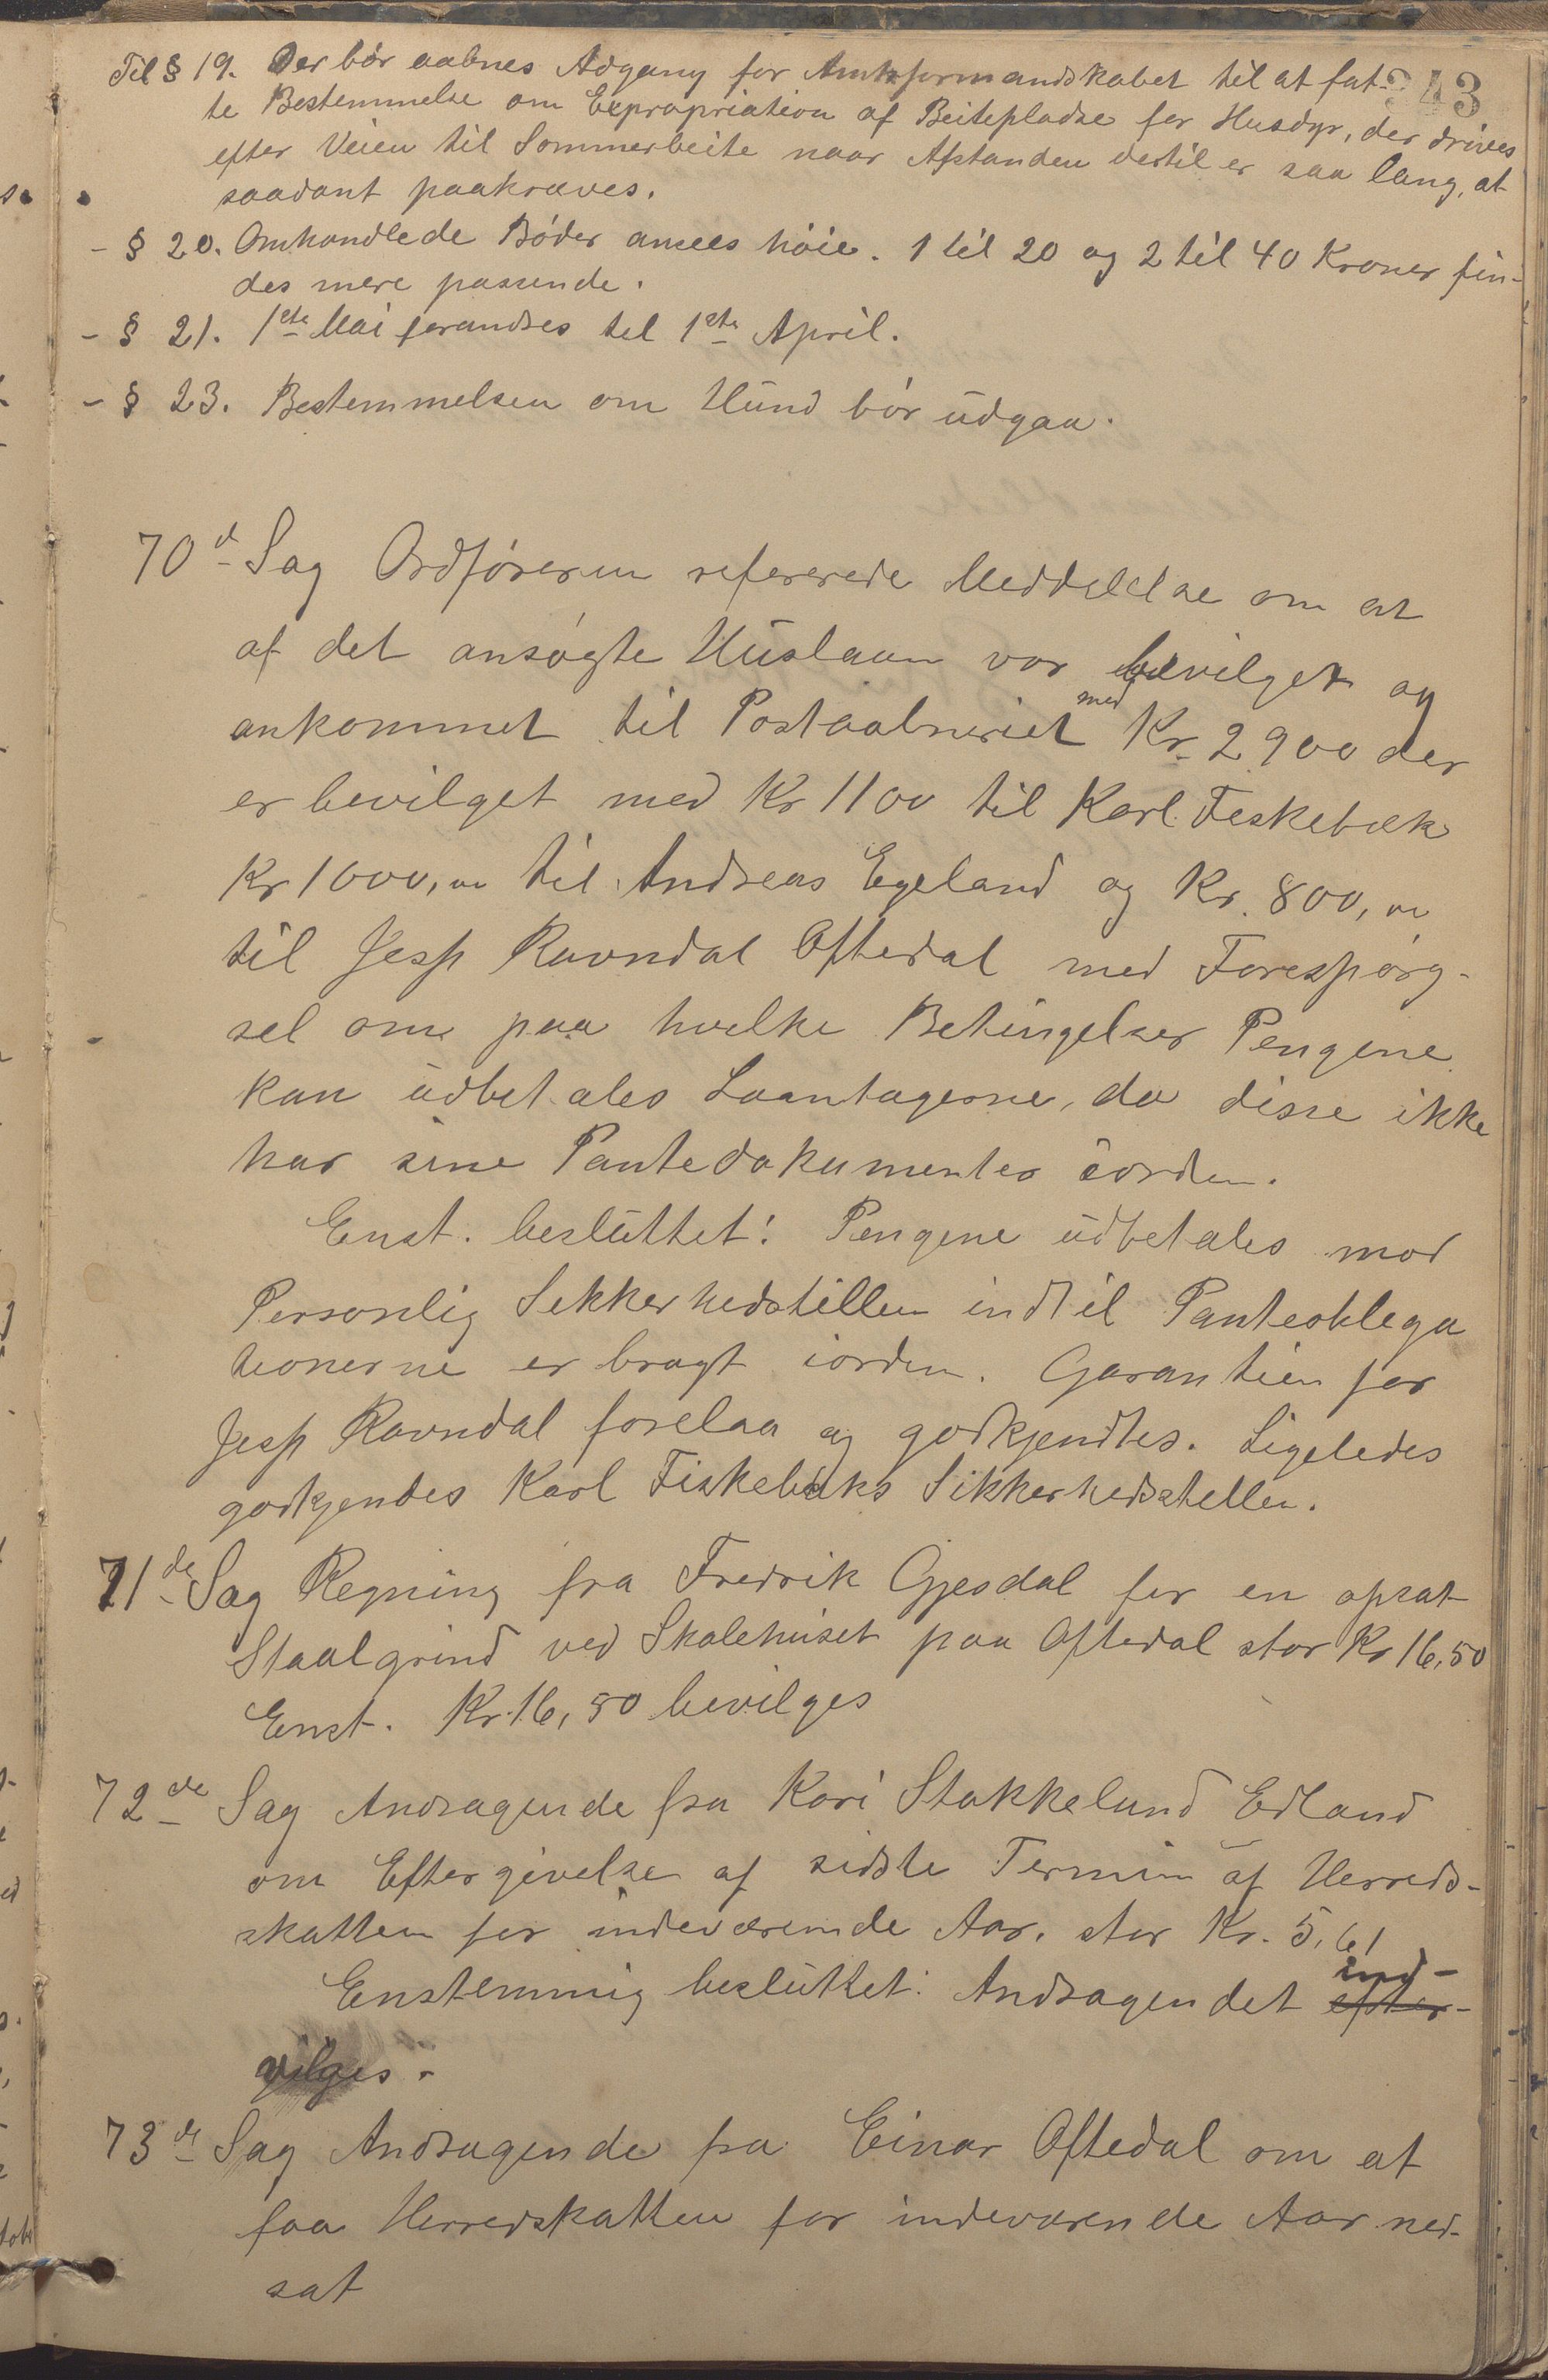 243
Til § 19. Der bør aabnes Adgang for Amtsformandskabet til at fat-
te Bestemmelse om Expropriation af Beitepladse for Husdyr, der drives
efter Veien til Sommerbeite naar Afstanden dertil er saa lang, at
saadant paakræves.
- § 20. Omhandlede Bøder ansees høie. 1 til 20 og 2 til 40 Kroner fin-
des mere passende.
- § 21. 1ste Mai forandres til 1ste April.
- § 23. Bestemmelsen om Hund bør udgaa.
70d Sag Ordføreren refererede Meddelelse om at
af det ansøgte Huslaan var bevilget og
ankommet til Postaabneriet med Kr 2900 der
er bevilget med Kr 1100 til Karl Fiskebæk
Kr 1000,00 til Andreas Egeland og Kr. 800,00
til Jesp Ravndal Oftedal med Forespørg-
sel om paa hvilke Betingelser Pengene
kan udbetales Laantagerne, da disse ikke
har sine Pantedokumenter iorden.
Enst. besluttet: Pengene udbetales mod
Personlig Sikkerhedstillen indtil Panteobliga
tionerne er bragt iorden. Garantien for
Jesp Ravndal forelaa og godkjendtes. Ligeledes
godkjendes Karl Fiskebæks Sikkerhedsstillen.
71de Sag Regning fra Fredrik Gjesdal for en opsat
Staalgrind ved Skolehuset paa Oftedal stor Kr 16,50
Enst. Kr. 16,50 bevilges
72de Sag Andragende fra Kari Stokkelund Edland
om Eftergivelse af sidste Termin af Herreds-
skatten for indeværende Aar. stor Kr. 5,61
Enstemmig besluttet: Andragendet efter- ind-
vilges.
73de Sag Andragende fra Einar Oftedal om at
faa Herredskatten for indeværende Aar ned-
sat